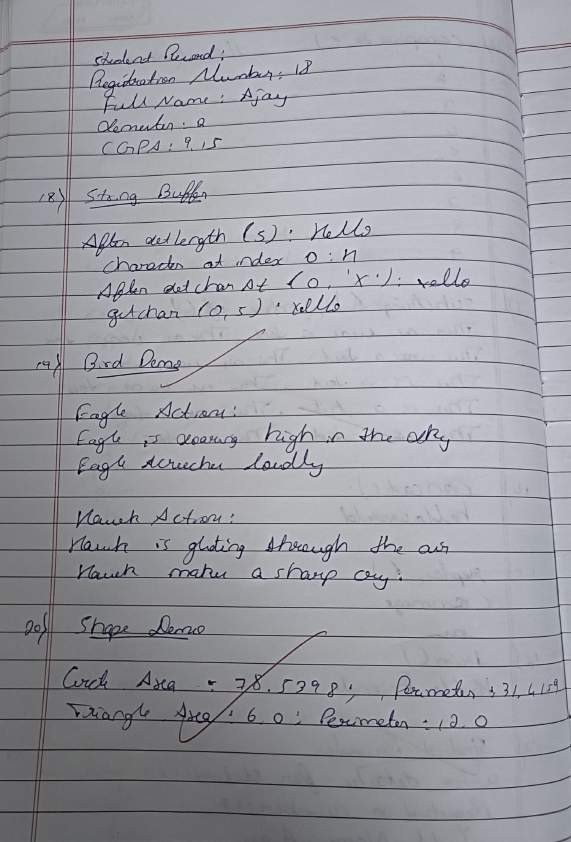 Student Record:
Registration Number: 18
Full Name: Ajay
Semester: 2
CGPA: 9.15
18) String Buffer
After setlength (5): Hello
character at index 0: H
After setcharAt (0, 'X'): xello
getchar (0, 5): xello
19) Bird Demo
Eagle Action:
Eagle is soaring high in the sky
Eagle screeches loudly
Hawk Action:
Hawk is gliding through the air
Hawk makes a sharp cry!
20) Shape Demo
Circle Area : 78.5398; Perimeter : 31.4159
Triangle Area : 6.0; Perimeter : 12.0